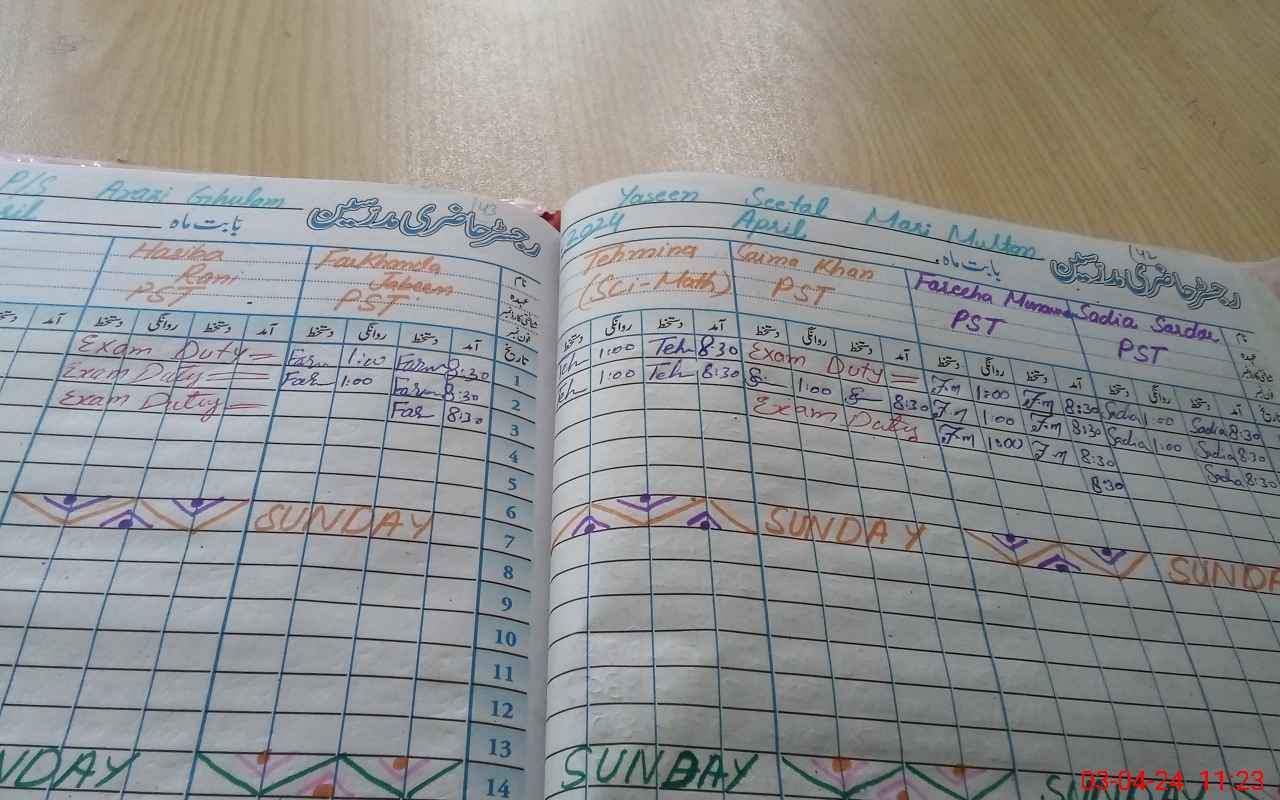 P/S Arazi Ghulam
رجسٹر حاضری مدرسین
بابت ماہ
143
Hasina Rani PST
Farkhanda Jabeen PST
نام
عہدہ
تاریخ
آمد دستخط روانگی دستخط آمد دستخط روانگی دستخط آمد
Exam Duty = Farm 1:00 Farm 8:30 1
Exam Duty = Far 1:00 Farm 8:30 2
Exam Duty = Far 8:30 3
4
5
6
SUNDAY 7
8
9
10
11
12
13
NDAY 14
Yaseen Seetal Mari Multan
2024 April
بابت ماہ
رجسٹر حاضری مدرسین
142
Tehmina (Sci-Math)
Saima Khan PST
Fareeha Munawar PST
Sadia Sardar PST
نام
دستخط روانگی دستخط آمد دستخط روانگی دستخط آمد دستخط روانگی دستخط آمد دستخط روانگی دستخط آمد
Teh 1:00 Teh 8:30 Exam Duty = F.m 1:00 F.m 8:30 Sadia 1:00 Sadia 8:30
Teh 1:00 Teh 8:30 1:00 8:30 F.m 1:00 F.m 8:30 Sadia 1:00 Sadia 8:30
Exam Duty F.m 1:00 F.m 8:30 Sadia 8:30
8:30
SUNDAY SUNDA
SUNDAY SUN
03-04-24 11:23